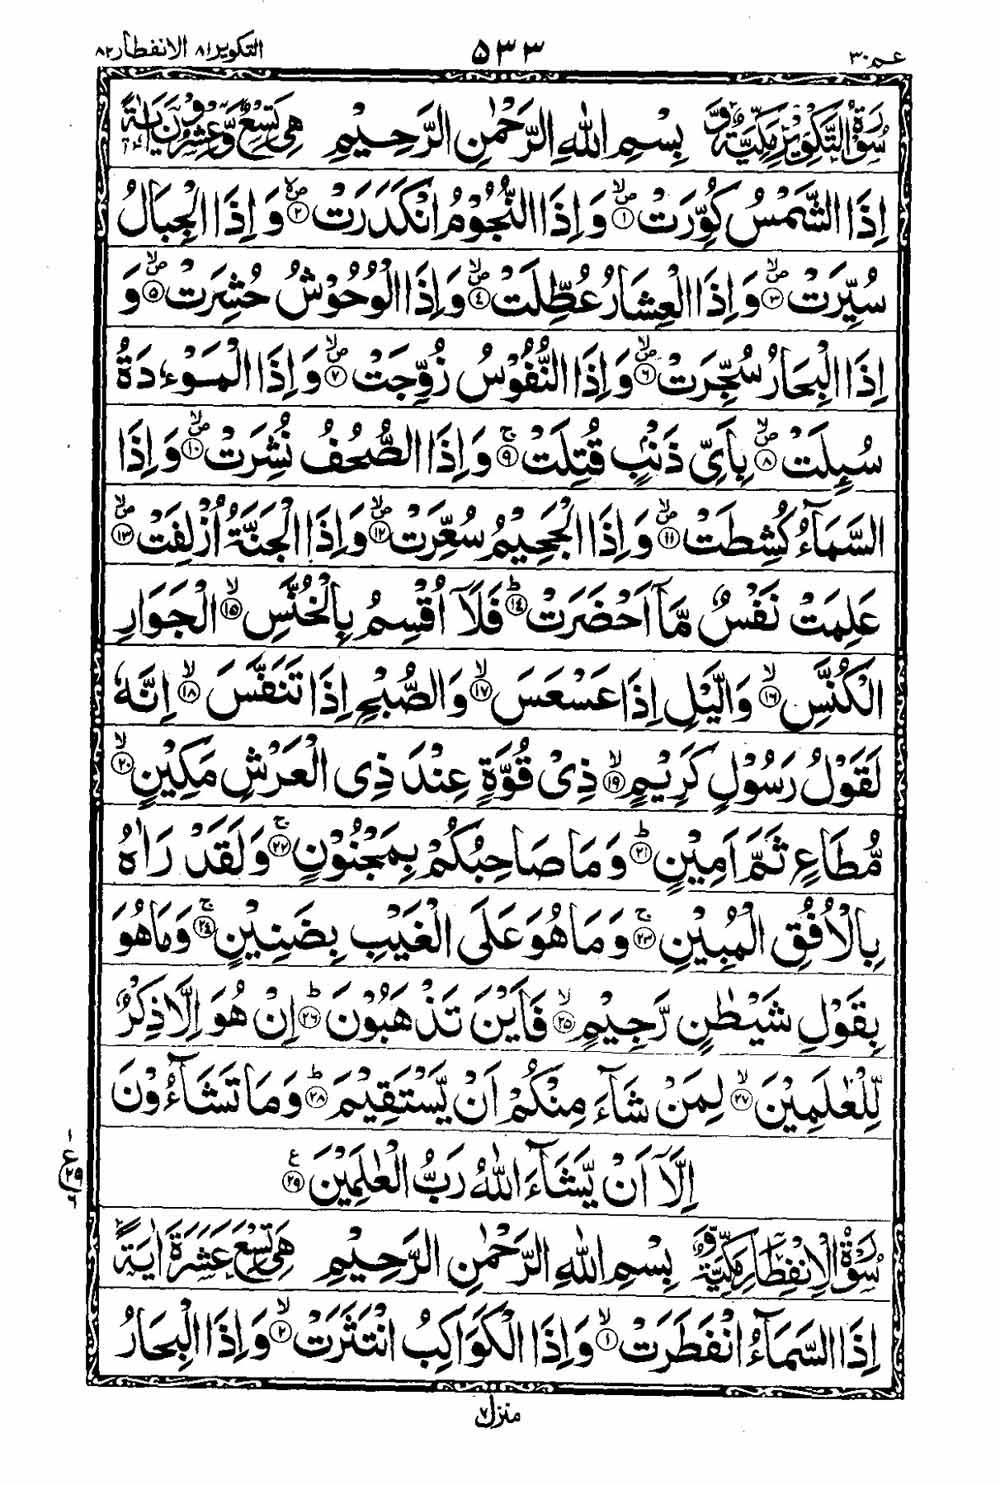 التكوير ٨١ الانفطار ٨٢ ۵۳۳ عم ٣٠
سُوْرَةُ التَّكْوِيْرِ مَكِّيَّةٌ وَّ بِسْمِ اللهِ الرَّحْمٰنِ الرَّحِيْمِ هِىَ تِسْعٌ وَّعِشْرُوْنَ اٰيَةً
اِذَا الشَّمْسُ كُوِّرَتْ ۝١ وَاِذَا النُّجُوْمُ انْكَدَرَتْ ۝٢ وَاِذَا الْجِبَالُ
سُيِّرَتْ ۝٣ وَاِذَا الْعِشَارُ عُطِّلَتْ ۝٤ وَاِذَا الْوُحُوْشُ حُشِرَتْ ۝٥ وَ
اِذَا الْبِحَارُ سُجِّرَتْ ۝٦ وَاِذَا النُّفُوْسُ زُوِّجَتْ ۝٧ وَاِذَا الْمَوْءٗدَةُ
سُئِلَتْ ۝٨ بِاَىِّ ذَنْۢبٍ قُتِلَتْ ۝٩ۚ وَاِذَا الصُّحُفُ نُشِرَتْ ۝١٠ وَاِذَا
السَّمَآءُ كُشِطَتْ ۝١١ وَاِذَا الْجَحِيْمُ سُعِّرَتْ ۝١٢ وَاِذَا الْجَنَّةُ اُزْلِفَتْ ۝١٣
عَلِمَتْ نَفْسٌ مَّاۤ اَحْضَرَتْ ۝١٤ؕ فَلَاۤ اُقْسِمُ بِالْخُنَّسِ ۝١٥ۙ الْجَوَارِ
الْكُنَّسِ ۝١٦ۙ وَالَّيْلِ اِذَا عَسْعَسَ ۝١٧ۙ وَالصُّبْحِ اِذَا تَنَفَّسَ ۝١٨ۙ اِنَّهٗ
لَقَوْلُ رَسُوْلٍ كَرِيْمٍ ۝١٩ۙ ذِىْ قُوَّةٍ عِنْدَ ذِى الْعَرْشِ مَكِيْنٍ ۝٢٠ۙ
مُّطَاعٍ ثَمَّ اَمِيْنٍ ۝٢١ؕ وَمَا صَاحِبُكُمْ بِمَجْنُوْنٍ ۝٢٢ۚ وَلَقَدْ رَاٰهُ
بِالْاُفُقِ الْمُبِيْنِ ۝٢٣ۚ وَمَا هُوَ عَلَى الْغَيْبِ بِضَنِيْنٍ ۝٢٤ۚ وَمَا هُوَ
بِقَوْلِ شَيْطٰنٍ رَّجِيْمٍ ۝٢٥ۙ فَاَيْنَ تَذْهَبُوْنَ ۝٢٦ؕ اِنْ هُوَ اِلَّا ذِكْرٌ
لِّلْعٰلَمِيْنَ ۝٢٧ۙ لِمَنْ شَآءَ مِنْكُمْ اَنْ يَّسْتَقِيْمَ ۝٢٨ؕ وَمَا تَشَآءُوْنَ
اِلَّاۤ اَنْ يَّشَآءَ اللهُ رَبُّ الْعٰلَمِيْنَ ۝٢٩ع
١ ع ٢٩ ٦
سُوْرَةُ الْاِنْفِطَارِ مَكِّيَّةٌ وَّ بِسْمِ اللهِ الرَّحْمٰنِ الرَّحِيْمِ هِىَ تِسْعَ عَشَرَةَ اٰيَةً
اِذَا السَّمَآءُ انْفَطَرَتْ ۝١ۙ وَاِذَا الْكَوَاكِبُ انْتَثَرَتْ ۝٢ۙ وَاِذَا الْبِحَارُ
منزل ٧